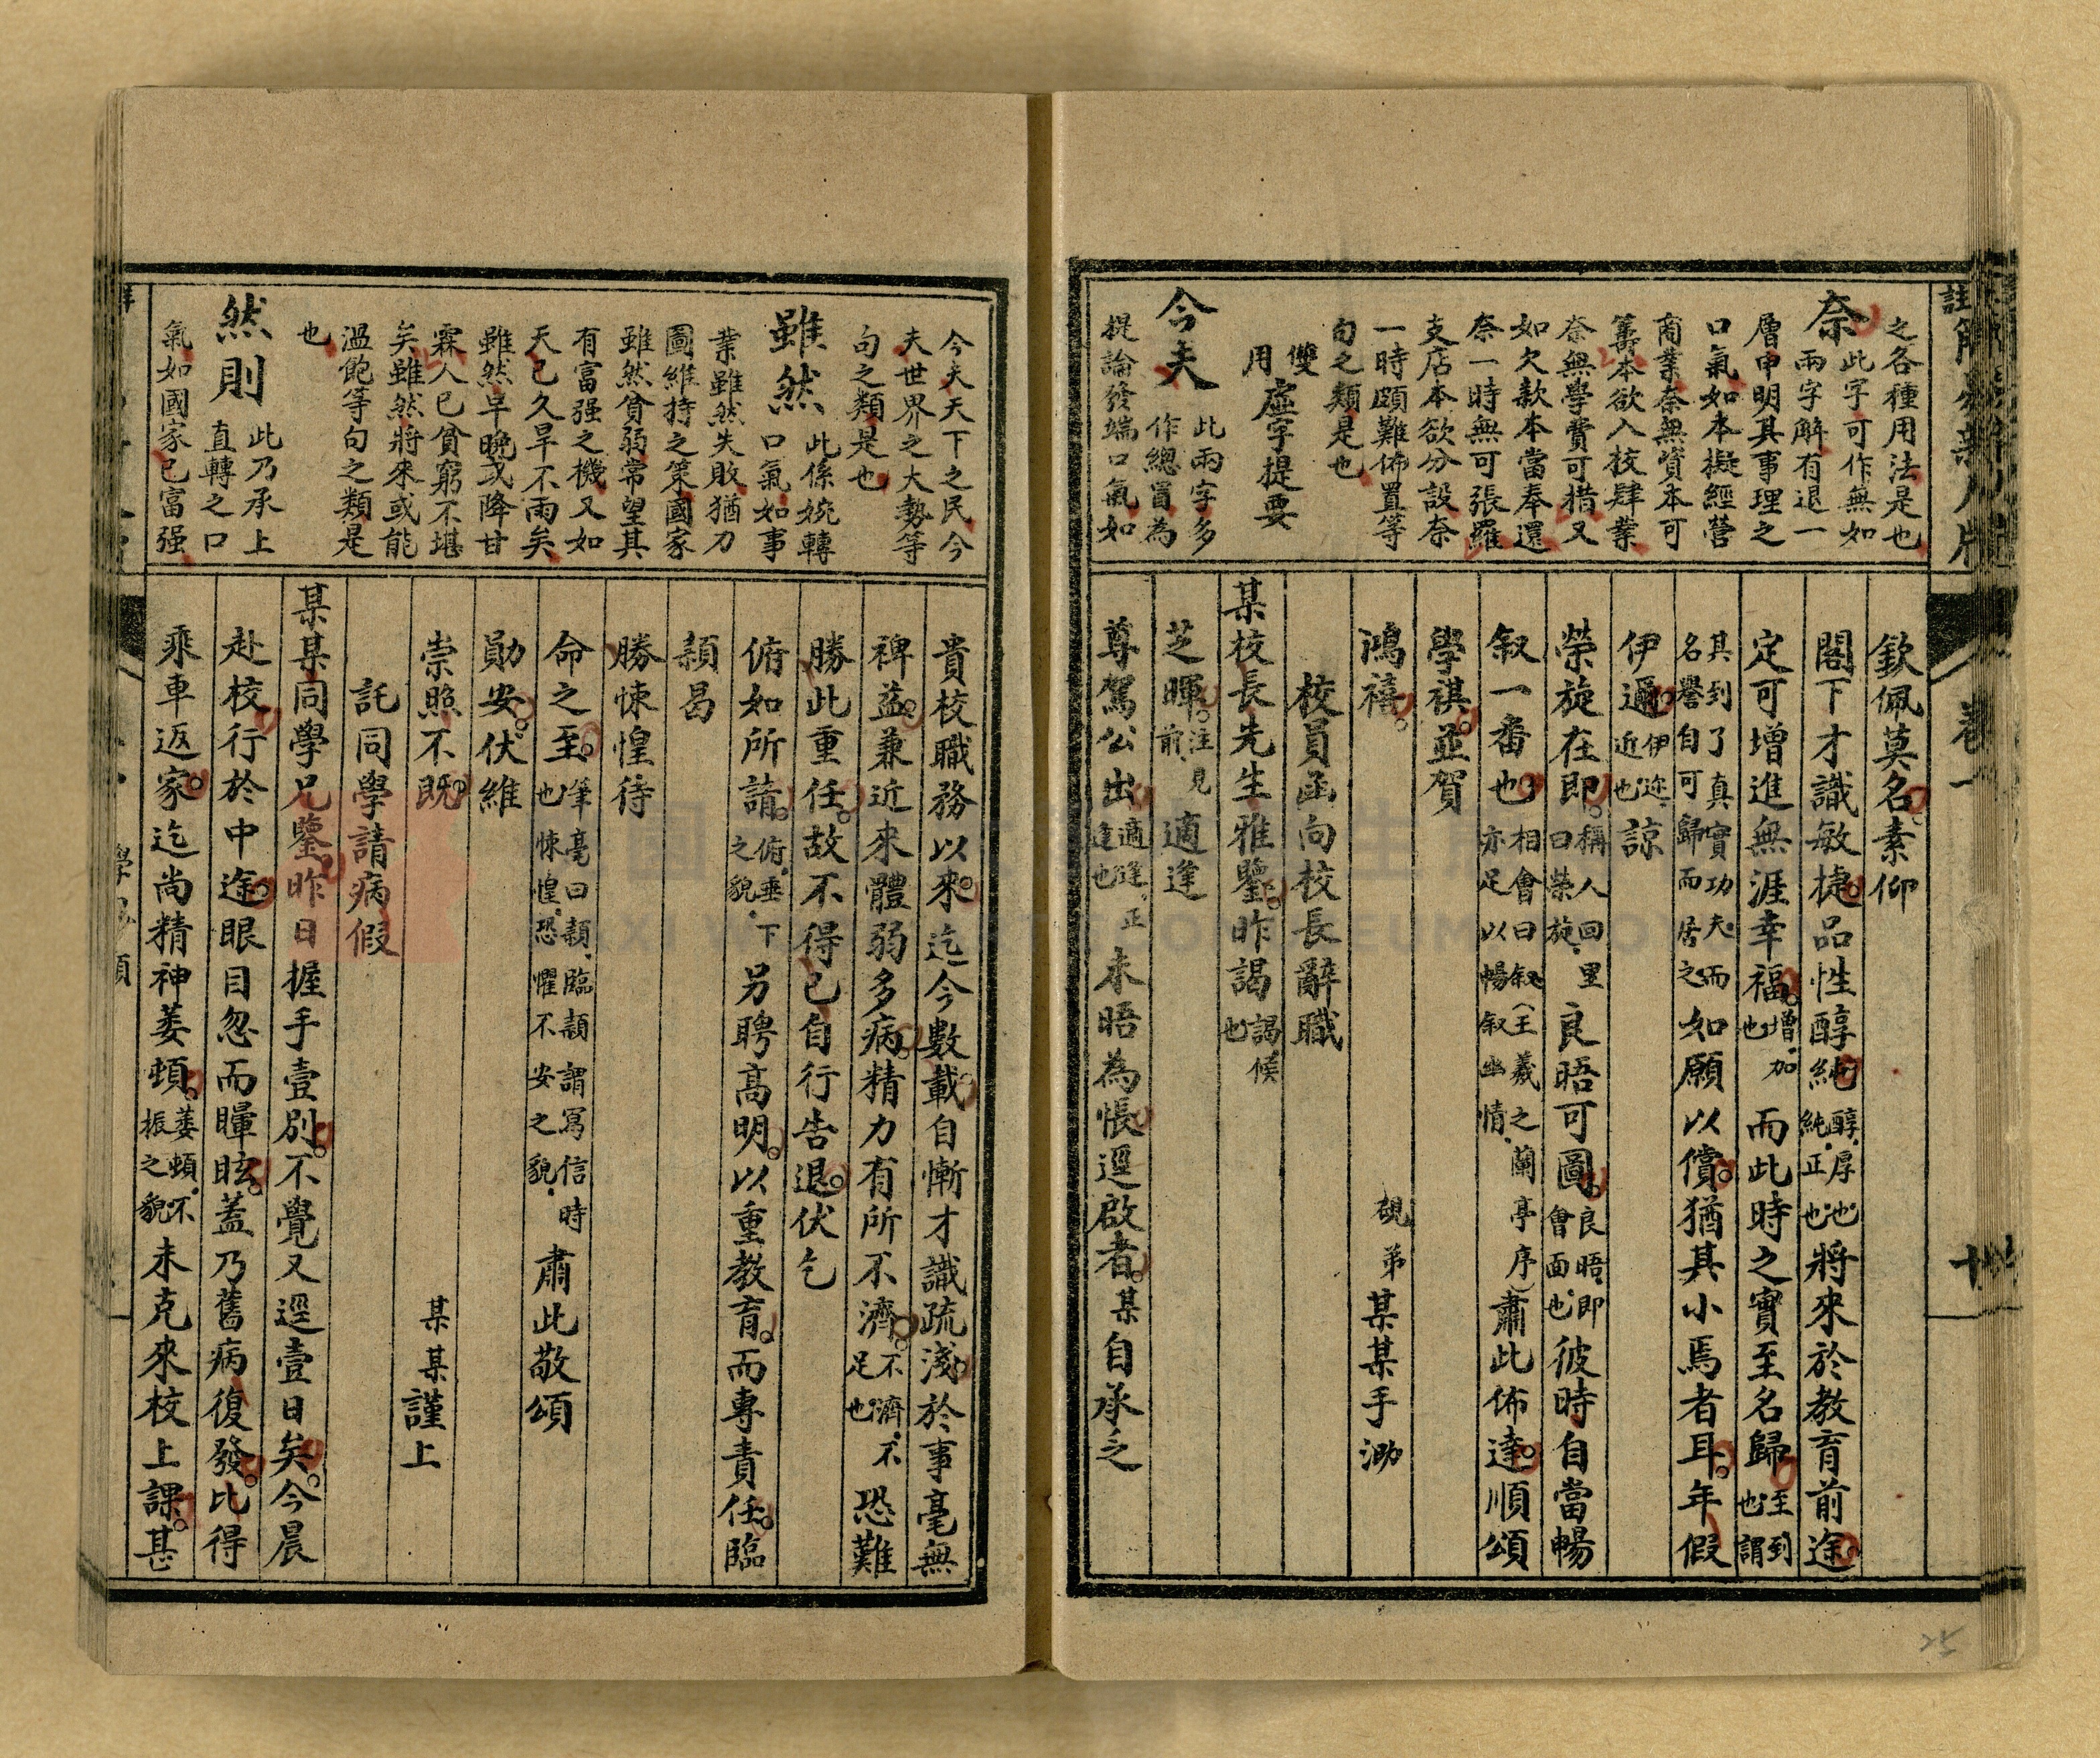 之各種用法是也
奈 此字可作無如
兩字解有退一
層申明其事理之
口氣如本擬經營
商業奈無資本可
籌本欲入校肆業
奈無學費可措又
如欠款本當奉還
奈一時無可張羅
支店本欲分設奈
一時頗難佈置等
句之類是也
雙用虛字提要
今夫 此兩字多
作總冒為
提論發端口氣如
欽佩莫名素仰
閣下才識敏捷品性醇純醇厚也純正也將來於教育前途
定可增進無涯幸福增加也而此時之實至名歸至到也謂
其到了真實功夫而名譽自可歸而居之如願以償猶其小焉者耳年假
伊邇伊迩近也諒
榮旋在即稱人回里曰榮旋良晤可圖良晤即會面也彼時自當暢
叙一番也相會曰叙(王羲之蘭亭序)亦足以暢叙幽情肅此佈達順頌
學祺並賀
鴻禧 硯弟某某手泐
校員函向校長辭職
某校長先生雅鑒昨謁謁候也
芝暉注見前適逢
尊駕公出適逢正遑也未晤為悵逕啟者某自承乏
卷一
今夫天下之民今
夫世界之大勢等
句之類是也
雖然 此係婉轉
口氣如事
業雖然失敗猶力
圖維持之策國家
雖然貧弱常望其
有富强之機又如
天已久旱不雨矣
雖然早晚或降甘
霖人已貧窮不堪
矣雖然將來或能
溫飽等句之類是
也
然則 此乃承上
直轉之口
氣如國家已富强
貴校職務以來迄今數載自慚才識疏淺於事毫無
裨益兼近來體弱多病精力有所不濟不濟不足也恐難
勝此重任故不得已自行告退伏乞
俯如所請俯垂下之貌另聘高明以重教育而專責任臨
頴曷
勝悚惶待
命之至筆毫曰頴臨頴謂寫信時也悚惶恐懼不安之貌肅此敬頌
勛安伏維
崇照不既 某某謹上
託同學請病假
某某同學兄鑒昨日握手壹別不覺又逕壹日矣今晨
赴校行於中途眼目忽而暉眩蓋乃舊病復發比得
乘車返家迄尚精神萎頓萎頓不振之貌未克來校上課甚
25